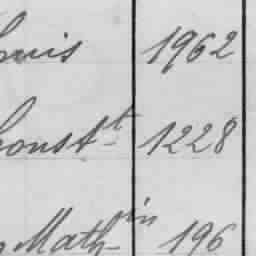 Louis 1962
Const.t 1228
Math.in 196